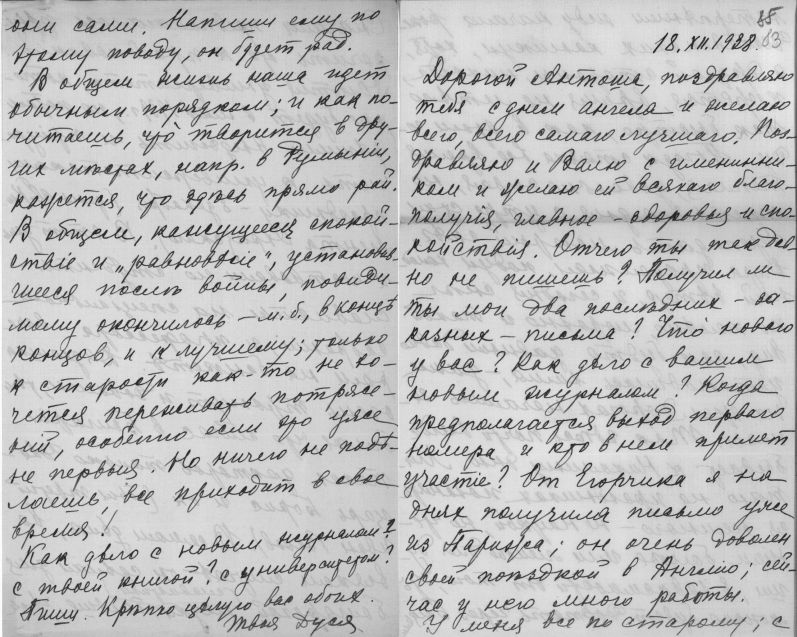 они сами. Напиши ему по
этому поводу, он будет рад.
В общем жизнь наша идет
обычным порядком; и как по-
читаешь, что творится в дру-
гих мѣстах, напр. в Румыніи,
кажется, что здѣсь прямо рай.
В общем, кажущееся спокой-
ствіе и „равновѣсіе", установив-
шееся послѣ войны, повиди-
мому окончилось – м.б., в концѣ
концов, и к лучшему; только
к старости как-то не хо-
чется переживать потрясе-
ній, особенно если это уже
не первыя. Но ничего не подѣ-
лаешь, все приходит в свое
время!
Как дѣло с новым журналом?
с твоей книгой? с университетом?
Пиши. Крѣпко цѣлую вас обоих.
Твоя Дуся
18.XII.1928.
63
Дорогой Антоша, поздравляю
тебя с днем ангела и желаю
всего, всего самаго лучшаго. Поз-
дравляю и Валю с именинни-
ком и желаю ей всякаго благо-
получія, главное – здоровья и спо-
койствія. Отчего ты так дав-
но не пишешь? Получил ли
ты мои два послѣдних – за-
казных – письма? Что нового
у вас? Как дѣло с вашим
новым журналом? Когда
предполагается выход перваго
номера и кто в нем примет
участіе? От Егорчика я на
днях получила письмо уже
из Парижа; он очень доволен
своей поѣздкой в Англію; сей-
час у него много работы.
У меня все по старому; с